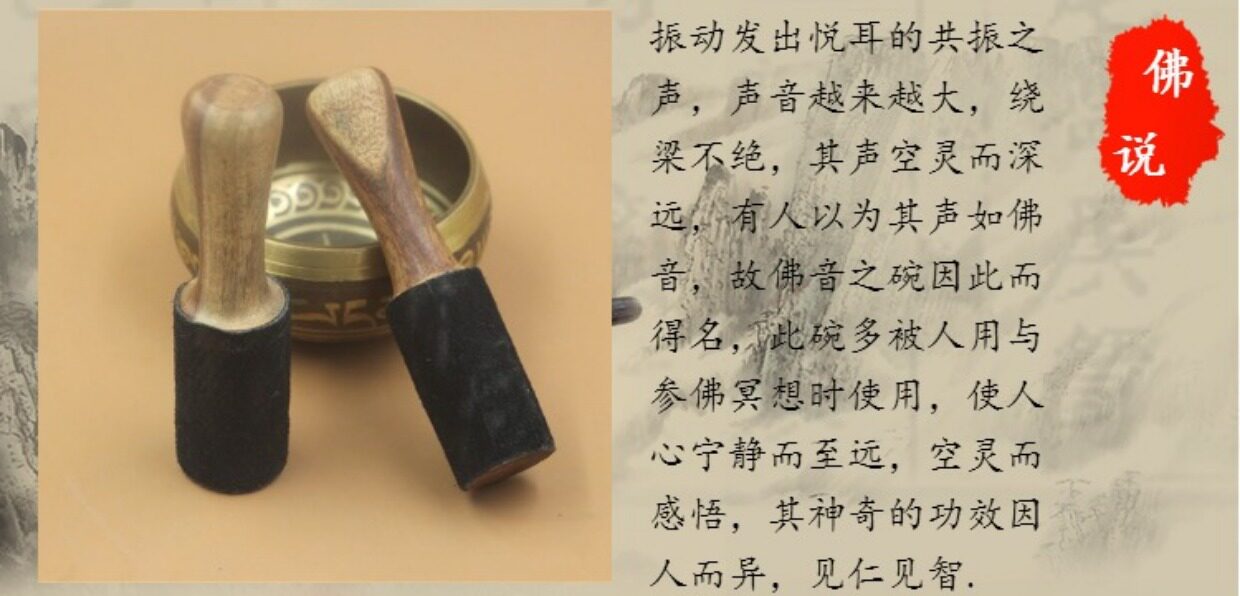 振动发出悦耳的共振之
声，声音越来越大，绕
梁不绝，其声空灵而深
远，有人以为其声如佛
音，故佛音之碗因此而
得名，此碗多被人用与
参佛冥想时使用，使人
心宁静而至远，空灵而
感悟，其神奇的功效因
人而异，见仁见智.
佛
说